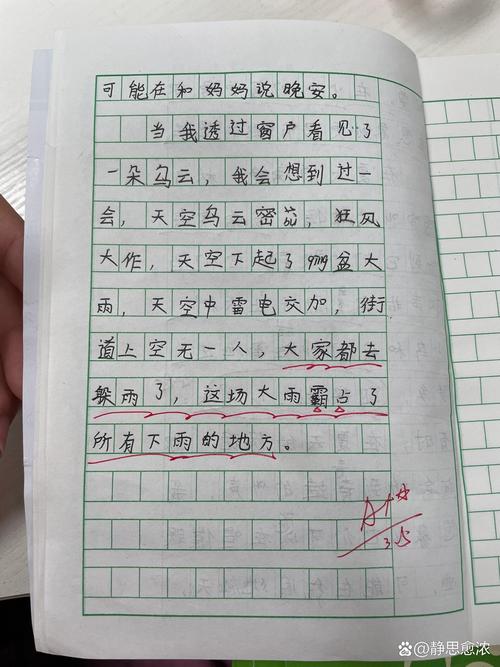 可能在和妈妈说晚安。
当我透过窗户看见了
一朵乌云，我会想到过一
会，天空乌云密苑，狂风
大作，天空下起了qīng盆大
雨，天空中雷电交加，街
道上空无一人，大家都去
躲雨了，这场大雨霸占了
所有下雨的地方。
A++
35
@静思愈浓